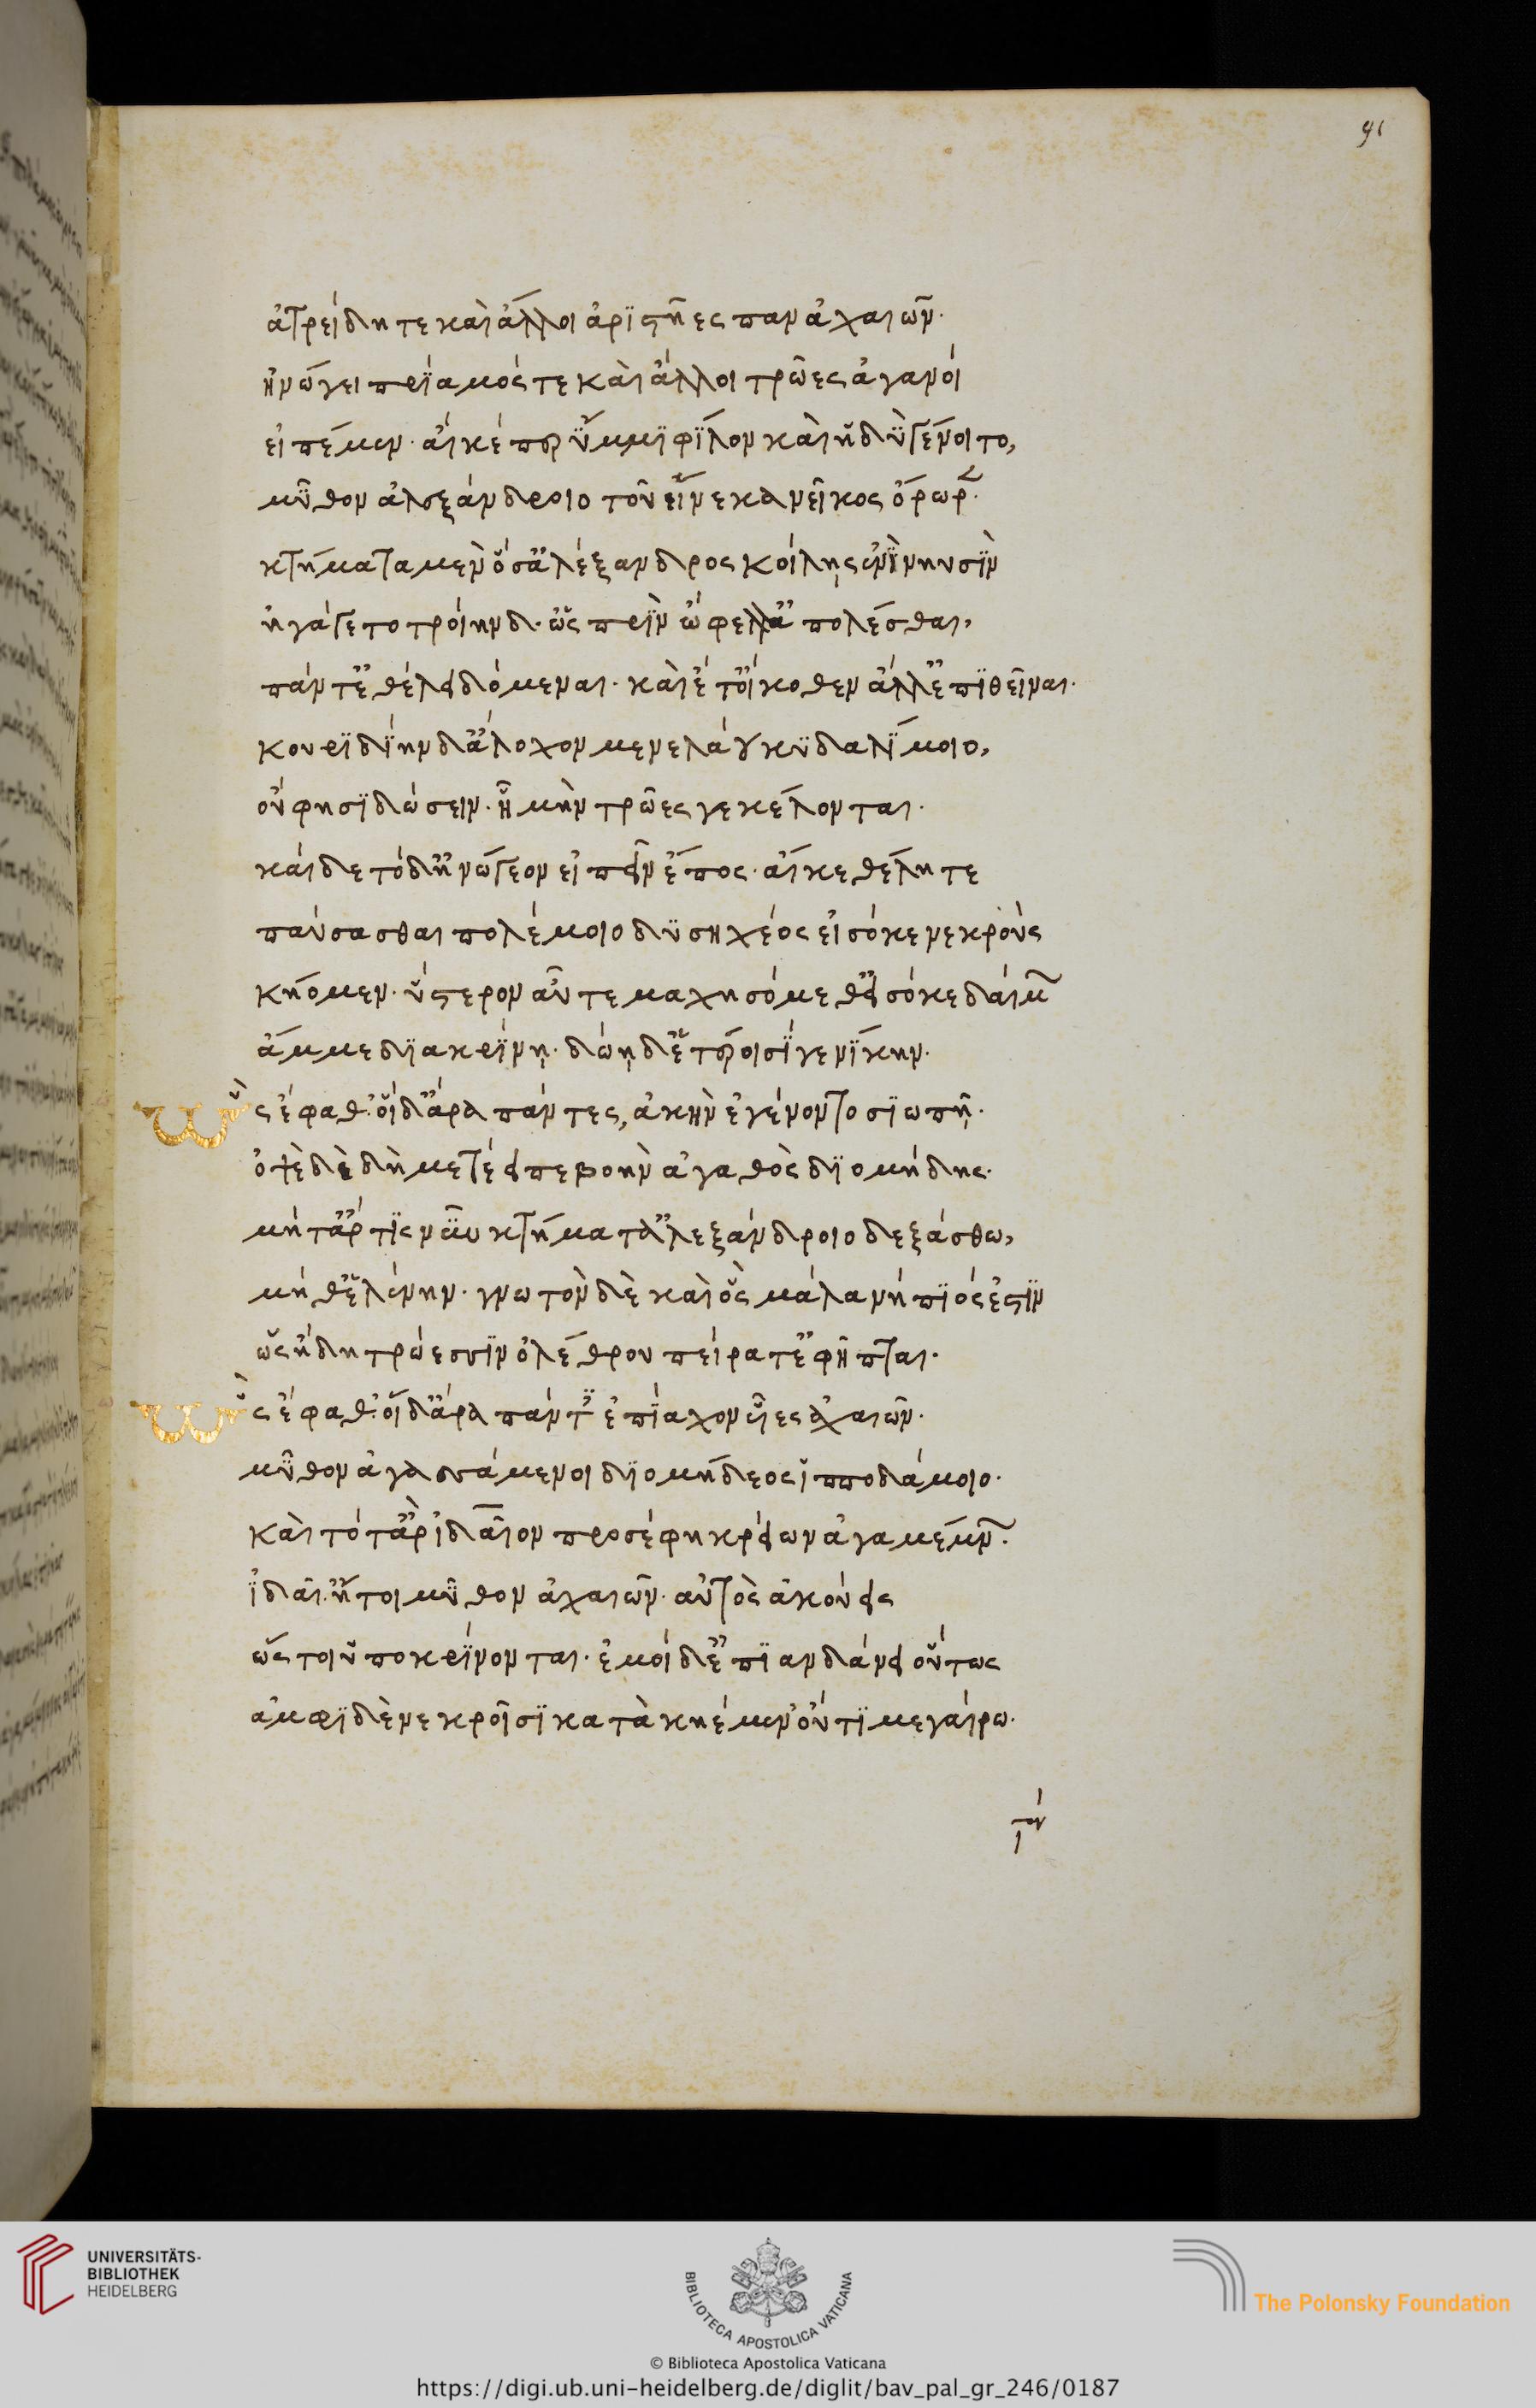 91
ἀτρείδη τε καὶ ἄλλοι ἀρϊστῆες παναχαιῶν·
ἠνώγει πρίαμός τε καὶ ἄλλοι τρῶες ἀγαυοί
εἰπέμεν· αἴ κέ περ ὔμμϊ φίλον καὶ ἡδὺ γένοιτο,
μῦθον ἀλεξάνδροιο τοῦ εἵνεκα νεῖκος ὄρωρε·
κτήματα μὲν ὅσ' ἀλέξανδρος κοίλῃς ἐνὶ νηυσὶν
ἠγάγετο τροίηνδ'· ὡς πρὶν ὤφελλ' ἀπολέσθαι,
πάντ' ἐθέλει δόμεναι· καὶ ἔτ' οἴκοθεν ἄλλ' ἐπϊθεῖναι·
κουριδίην δ' ἄλοχον μενελάου κυδαλίμοιο,
οὔ φησϊ δώσειν· ἦ μὴν τρῶές γε κέλονται·
καὶ δὲ τόδ' ἠνώγεον εἰπεῖν ἔπος· αἴ κε θέλητε
παύσασθαι πολέμοιο δυσηχέος εἰσόκε νεκροὺς
κήομεν· ὕστερον αὖτε μαχησόμεθ' εἰσόκε δαίμων
ἄμμε διακρίνῃ· δώῃ δ' ἑτέροισί γε νίκην·
ὣς ἔφαθ'· οἱ δ' ἄρα πάντες, ἀκὴν ἐγένοντο σϊωπῇ·
ὀψὲ δὲ δὴ μετέειπε βοὴν ἀγαθὸς διομήδης·
μήτ' ἄρ τις νῦν κτήματ' ἀλεξάνδροιο δεξάσθω,
μήθ' ἑλένην· γνωτὸν δὲ καὶ ὃς μάλα νήπϊός ἐστϊν
ὡς ἤδη τρώεσσιν ὀλέθρου πείρατ' ἐφῆπται·
ὣς ἔφαθ'· οἱ δ' ἄρα πάντες ἐπίαχον υἷες ἀχαιῶν·
μῦθον ἀγασσάμενοι διομήδεος ἱπποδάμοιο·
καὶ τότ' ἄρ' ἰδαῖον προσέφη κρείων ἀγαμέμνων·
ἰδαῖ'· ἤτοι μῦθον ἀχαιῶν· αὐτὸς ἀκούεις
ὥς τοι ὑποκρίνονται· ἐμοὶ δ' ἐπϊανδάνει οὕτως
ἀμφὶ δὲ νεκροῖσϊ κατὰ κηέμεν οὔτϊ μεγαίρω·
UNIVERSITÄTS-
BIBLIOTHEK
HEIDELBERG
BIBLIOTECA APOSTOLICA VATICANA
© Biblioteca Apostolica Vaticana
The Polonsky Foundation
https://digi.ub.uni-heidelberg.de/diglit/bav_pal_gr_246/0187